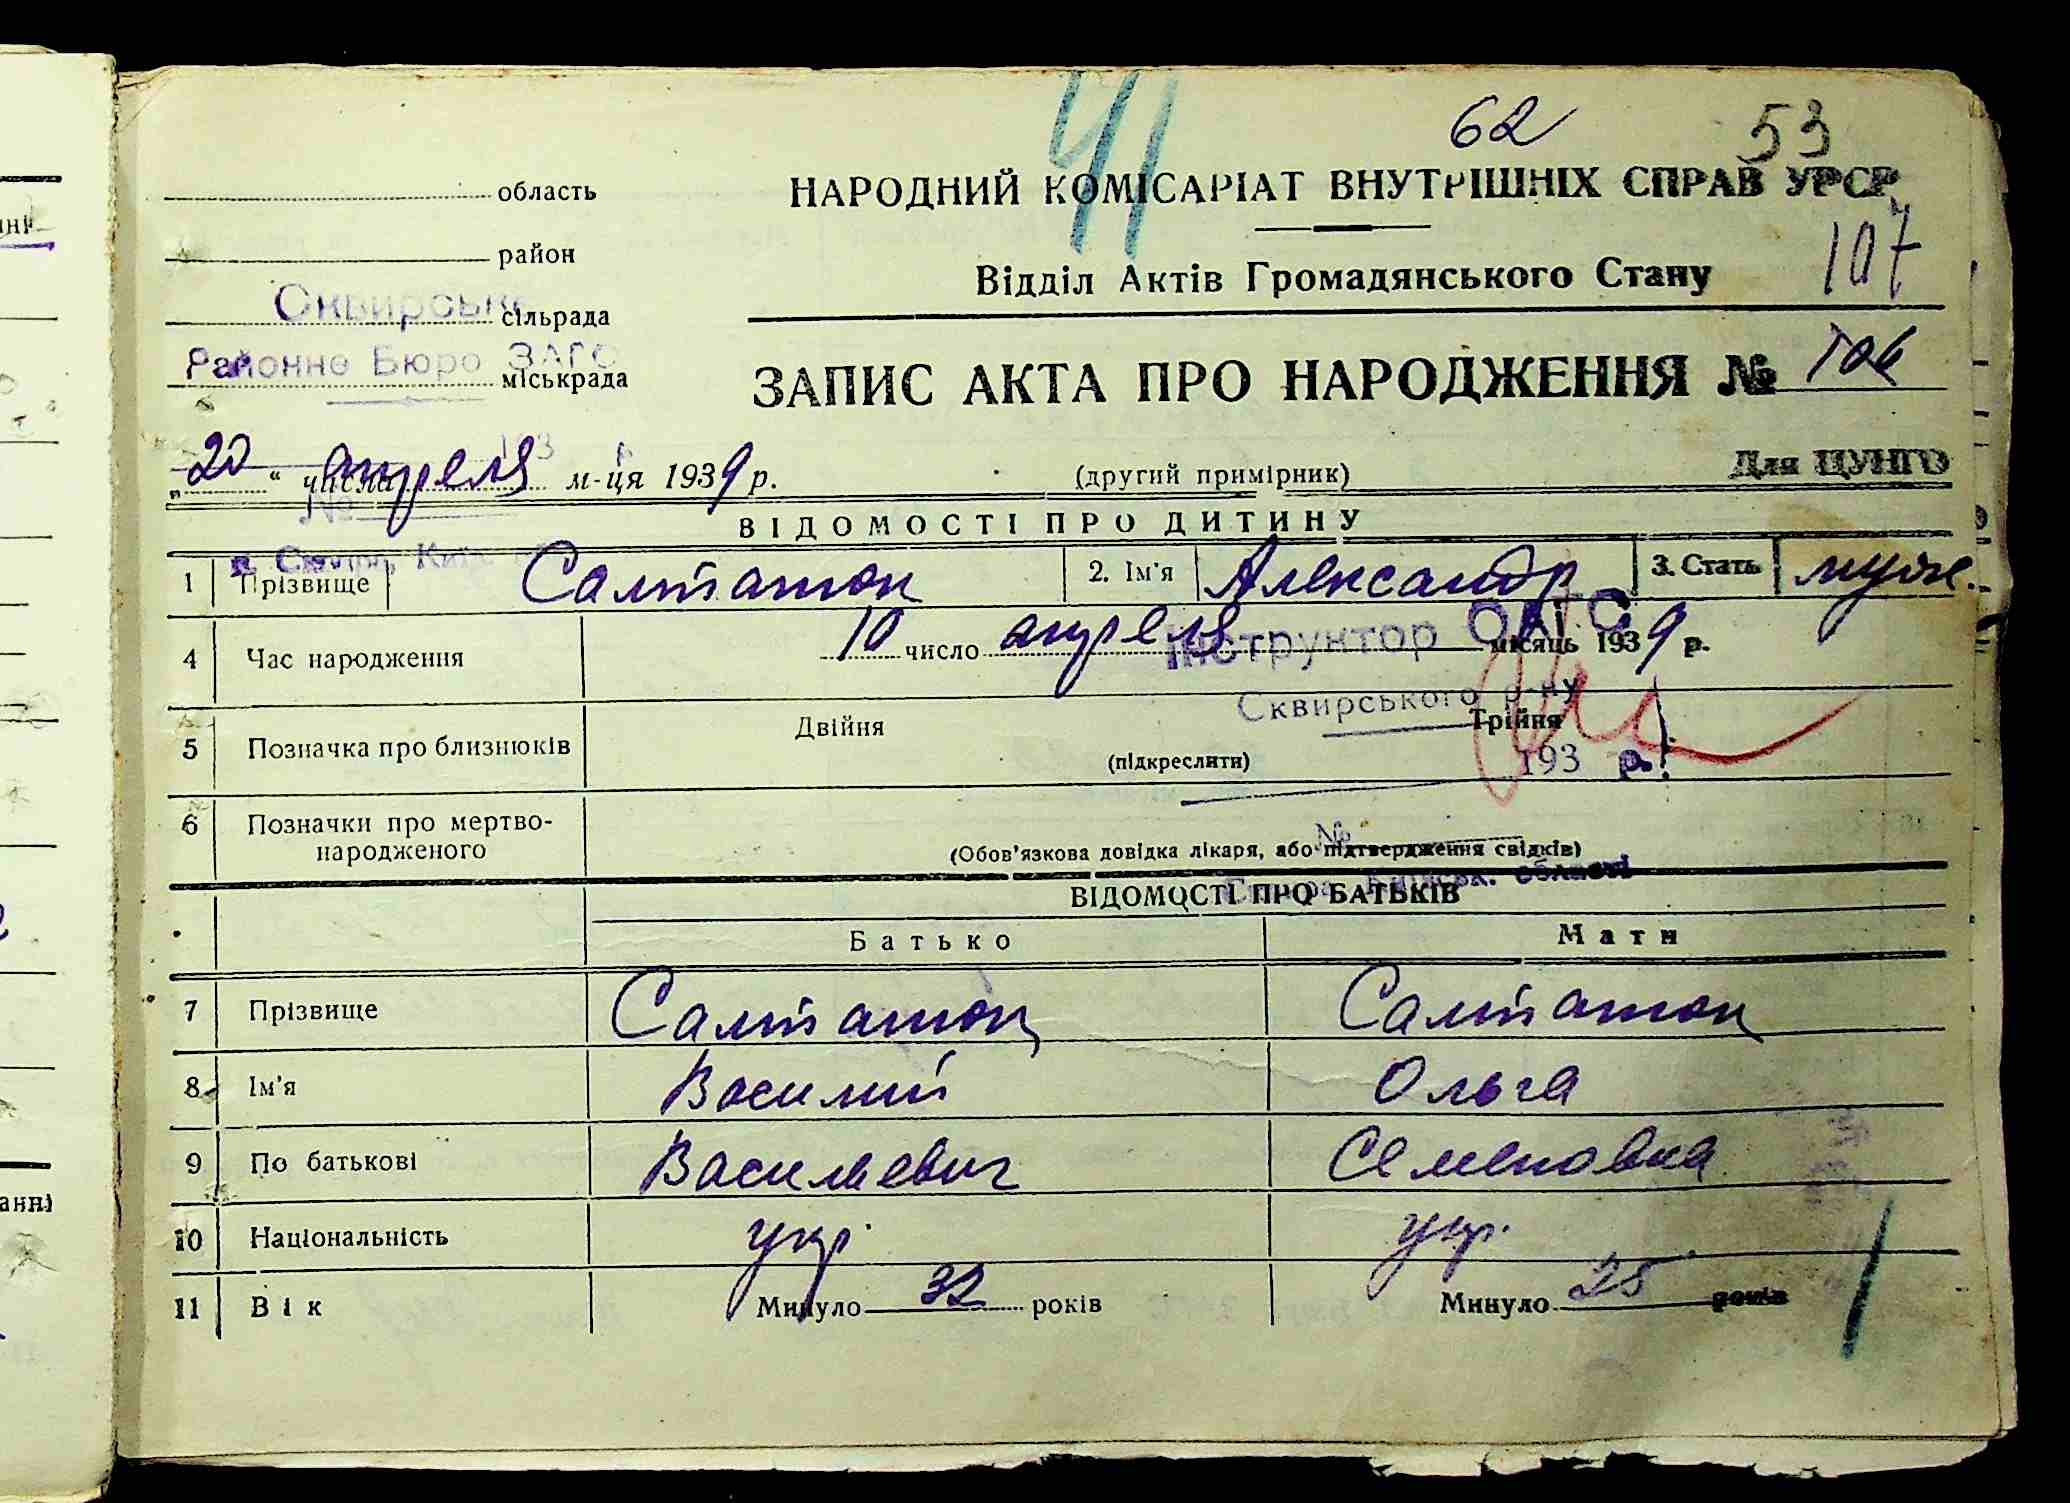 41
62
53
область
НАРОДНИЙ КОМІСАРІАТ ВНУТРІШНІХ СПРАВ УРСР
район
107
Відділ Актів Громадянського Стану
Сквирське
сільрада
Районне Бюро ЗАГС
міськрада
ЗАПИС АКТА ПРО НАРОДЖЕННЯ № 106
193 р.
„20“ числа апреля м-ця 1939 р.
(другий примірник)
Для ЦУНГО
№
ВІДОМОСТІ ПРО ДИТИНУ
м. Сквира, Київ
1 Прізвище Салтатюк 2. Ім'я Александр 3. Стать муж.
4 Час народження 10 число апреля місяць 1939 р.
Інструктор ОАГС
Сквирського р-ну
5 Позначка про близнюків Двійня Трійня
(підкреслити)
193 р.
6 Позначки про мертво-
народженого
№
(Обов'язкова довідка лікаря, або підтвердження свідків)
Сквира Київськ. області
ВІДОМОСТІ ПРО БАТЬКІВ
Батько Мати
7 Прізвище Салтатюк Салтатюк
8 Ім'я Василий Ольга
9 По батькові Василиевич Семеновна
10 Національність укр. укр.
11 Вік Минуло 32 років Минуло 25 років